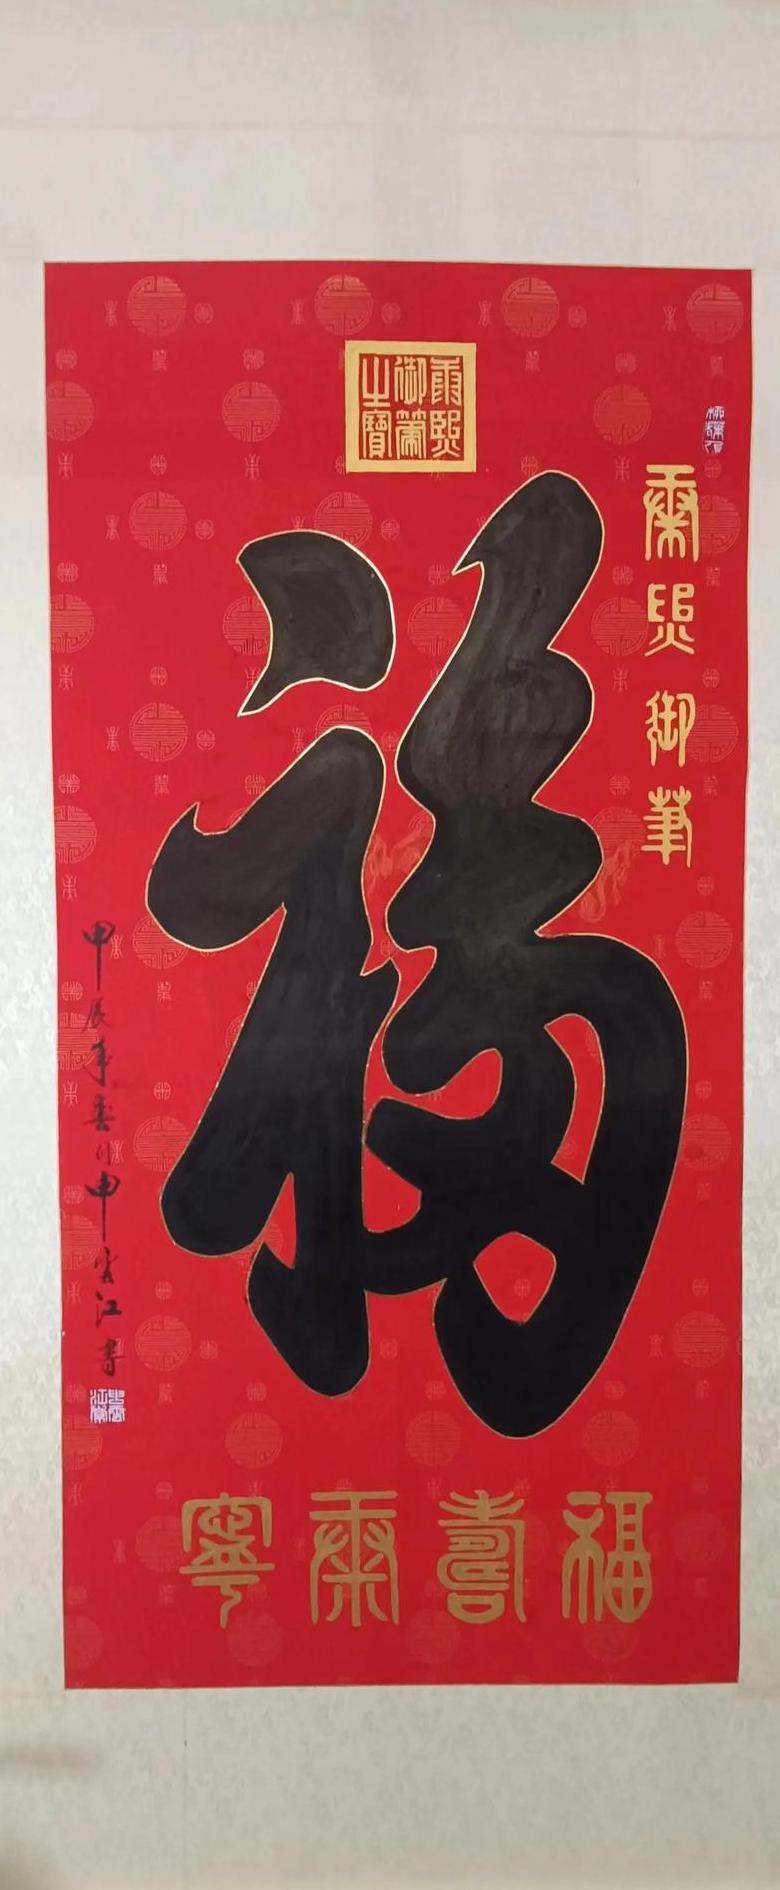 康熙御筆之寶
康熙御筆
福
甲辰年春月申雲江書
福壽康寧